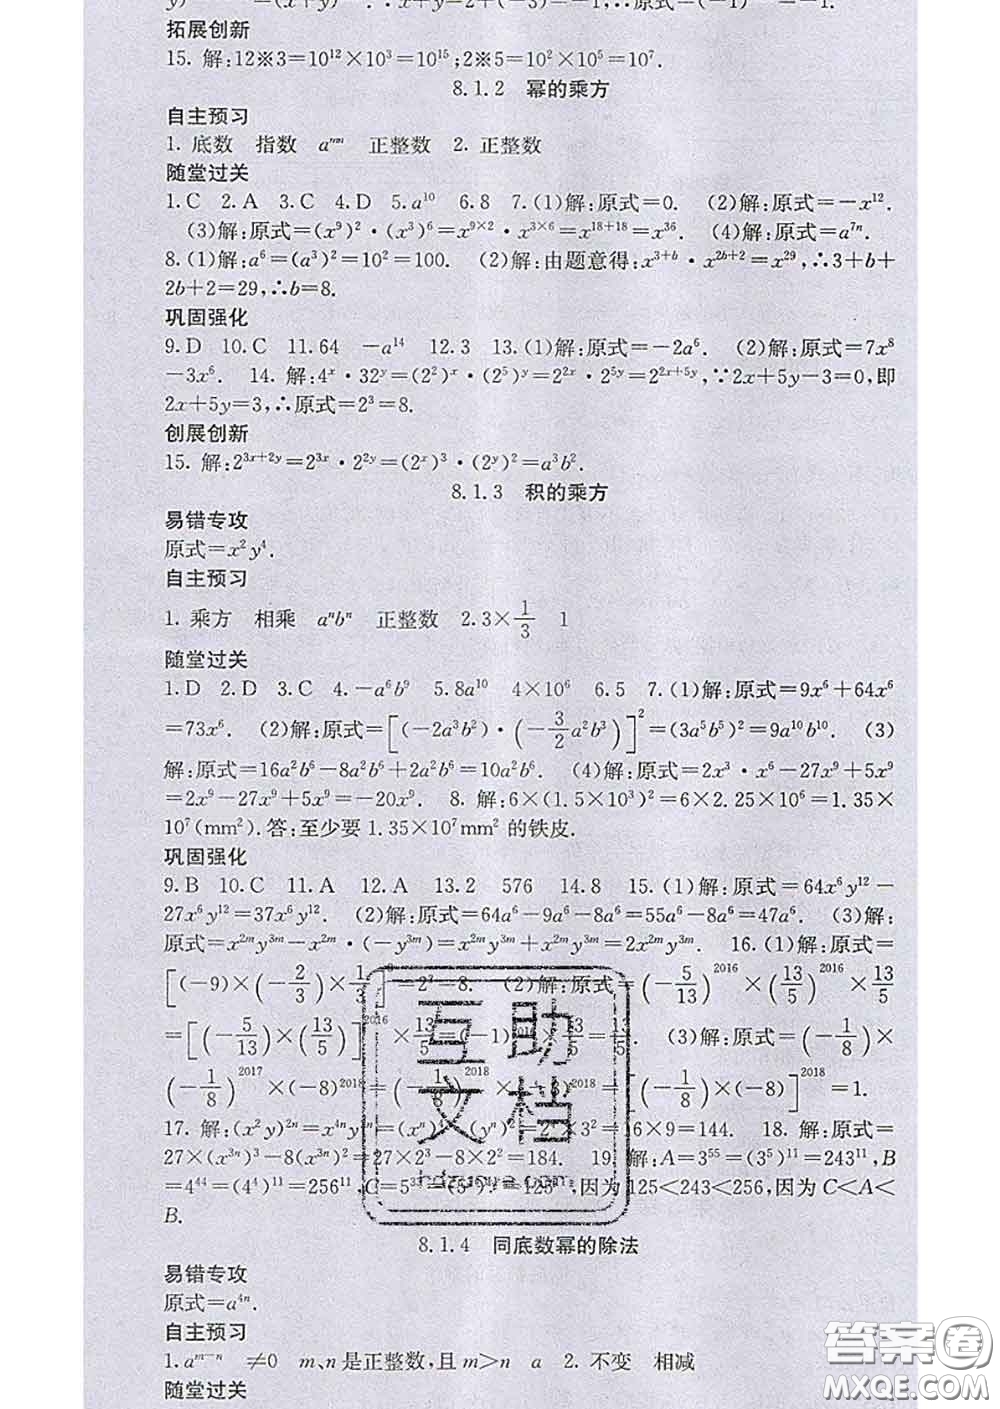 y)　　=(x+y)　.∴x+y=2+(-3)=-1,∴原式=(-1)　=-1.
拓展创新
15. 解:12※3=10¹²×10³=10¹⁵;2※5=10²×10⁵=10⁷.
8.1.2　幂的乘方
自主预习
1. 底数　指数　aⁿᵐ　正整数　2. 正整数
随堂过关
1.C　2.A　3.C　4.D　5.a¹⁰　6.8　7.(1)解:原式=0.　(2)解:原式=-x¹².
(3)解:原式=(x⁹)²·(x³)⁶=x^{9×2}·x^{3×6}=x^{18+18}=x³⁶.　(4)解:原式=a^{7n}.
8.(1)解:a⁶=(a³)²=10²=100.　(2)解:由题意得:x^{3+b}·x^{2b+2}=x²⁹,∴3+b+
2b+2=29,∴b=8.
巩固强化
9.D　10.C　11.64　-a¹⁴　12.3　13.(1)解:原式=-2a⁶.　(2)解:原式=7x⁸
-3x⁶.　14. 解:4ˣ·32ʸ=(2²)ˣ·(2⁵)ʸ=2^{2x}·2^{5y}=2^{2x+5y},∵2x+5y-3=0,即
2x+5y=3,∴原式=2³=8.
创展创新
15. 解:2^{3x+2y}=2^{3x}·2^{2y}=(2ˣ)³·(2ʸ)²=a³b².
8.1.3　积的乘方
易错专攻
原式=x²y⁴.
自主预习
1. 乘方　相乘　aⁿbⁿ　正整数　2.3×1/3　1
随堂过关
1.D　2.D　3.C　4.-a⁶b⁹　5.8a¹⁰　4×10⁶　6.5　7.(1)解:原式=9x⁶+64x⁶
=73x⁶.　(2)解:原式=[(-2a³b²)·(-3/2a²b³)]²=(3a⁵b⁵)²=9a¹⁰b¹⁰.　(3)
解:原式=16a²b⁶-8a²b⁶+2a²b⁶=10a²b⁶.　(4)解:原式=2x³·x⁶-27x⁹+5x⁹
=2x⁹-27x⁹+5x⁹=-20x⁹.　8. 解:6×(1.5×10³)²=6×2.25×10⁶=1.35×
10⁷(mm²).答:至少要1.35×10⁷mm²的铁皮.
巩固强化
9.B　10.C　11.A　12.A　13.2　576　14.8　15.(1)解:原式=64x⁶y¹²-
27x⁶y¹²=37x⁶y¹².　(2)解:原式=64a⁶-9a⁶-8a⁶=55a⁶-8a⁶=47a⁶.　(3)解:
原式=x^{2m}y^{3m}-x^{2m}·(-y^{3m})=x^{2m}y^{3m}+x^{2m}y^{3m}=2x^{2m}y^{3m}.　16.(1)解:原式=
[(-9)×(-2/3)×1/3]³=2³=8.　(2)解:原式=(-5/13)^{2016}×(13/5)^{2016}×13/5
=[(-5/13)×(13/5)]^{2016}×13/5=(-1)^{2016}×13/5=13/5.　(3)解:原式=(-1/8)×
(-1/8)^{2017}×(-8)^{2018}=(-1/8)^{2018}×(-8)^{2018}=[(-1/8)×(-8)]^{2018}=1.
17. 解:(x²y)^{2n}=x^{4n}y^{2n}=(xⁿ)⁴(yⁿ)²=2⁴×3²=16×9=144.　18. 解:原式=
27×(x^{3n})³-8(x^{3n})²=27×2³-8×2²=184.　19. 解:A=3⁵⁵=(3⁵)¹¹=243¹¹,B
=4⁴⁴=(4⁴)¹¹=256¹¹,C=5³³=(5³)¹¹=125¹¹,因为125<243<256,因为C<A<
B.
8.1.4　同底数幂的除法
易错专攻
原式=a^{4n}.
自主预习
1.a^{m-n}　≠0　m、n是正整数,且m>n　a　2. 不变　相减
随堂过关
互助
文档
答案圈
MXQE.COM